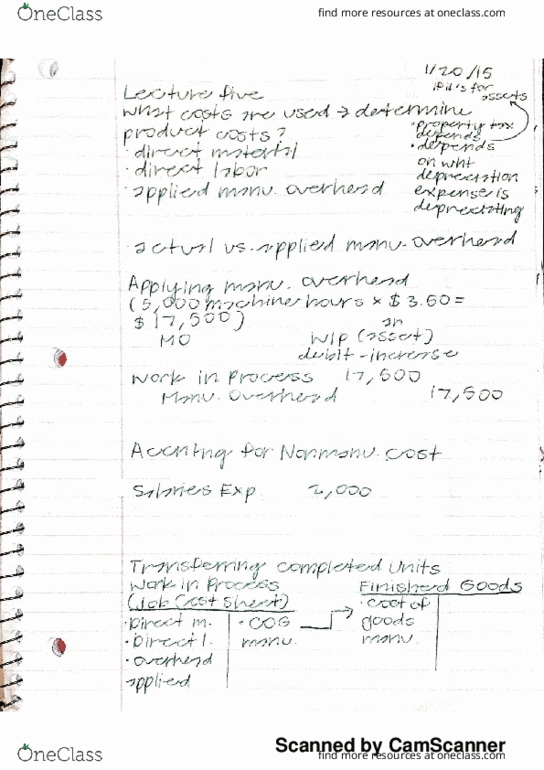 OneClass
find more resources at oneclass.com
1/20/15
if it's for
assets
Lecture five
what costs are used → determine
product costs?
• property tax
depends
• direct material
• depends
• direct labor
on wht
depreciation
• applied manu. overhead
expense is
depreciating
• actual vs. applied manu. overhead
Applying manu. overhead
(5,000 machine hours x $3.50 =
$17,500)
an
MO
WIP (asset)
debit - increase
Work in Process 17,500
Manu. Overhead 17,500
Accnting for Nonmanu. cost
Salaries Exp. 2,000
Transferring Completed Units
Work in Process
Finished Goods
(Job Cost Sheet)
• Direct m.
• COG
• cost of
• Direct l.
manu.
goods
• overhead
manu.
applied
Scanned by CamScanner
OneClass
find more resources at oneclass.com